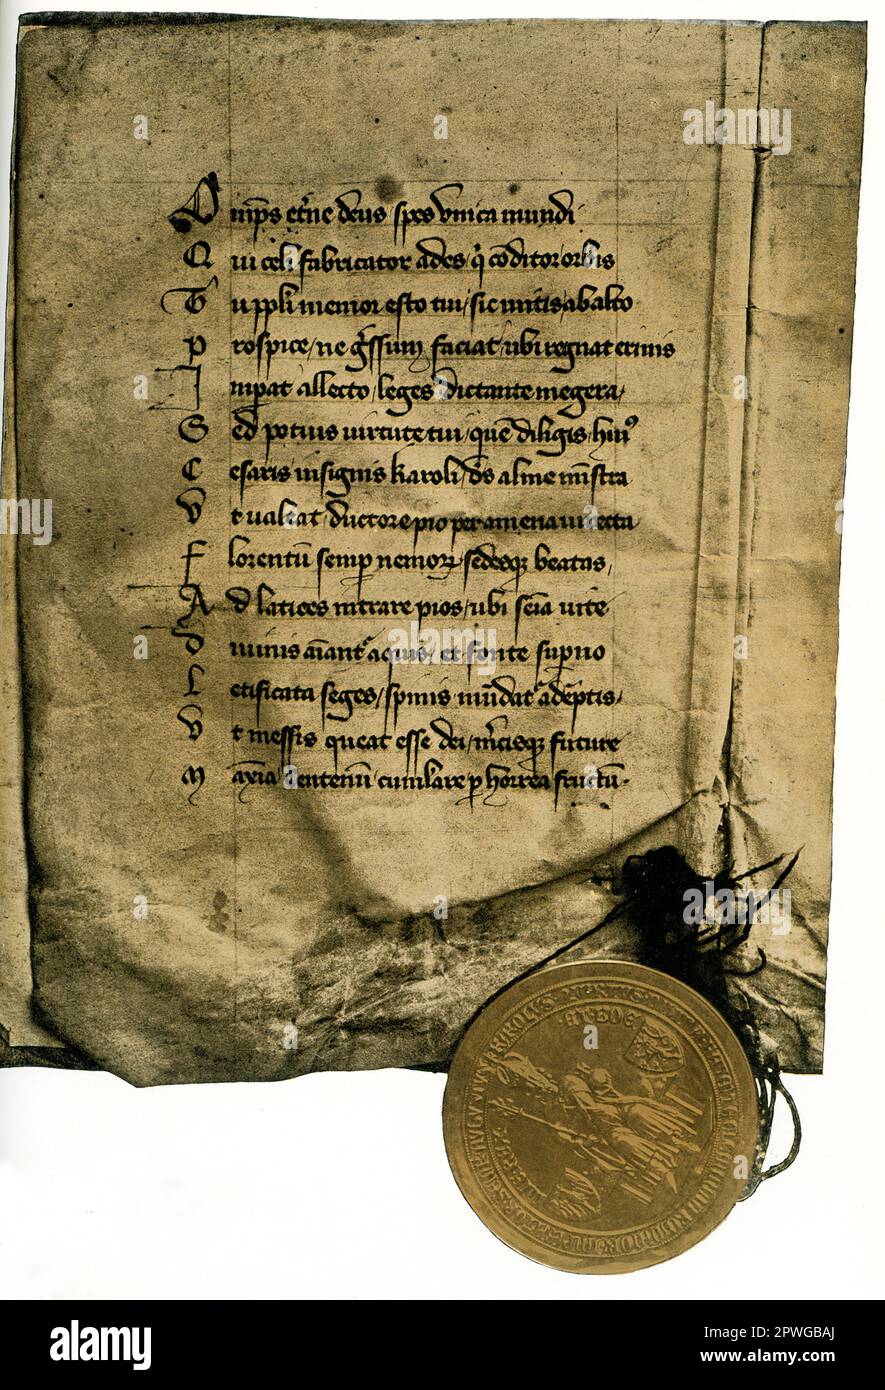 Om̄ps et̄ne deus spes vnica mundi
Qui celi fabricator ades, qͥ cōditor orbis
Tu ppli memor esto tui, sic mitis ab alto
Prospice, ne gͬssum faciat, ubi regnat erinis
Imꝑat allecto, leges dictante megera,
Sed potius uirtute tui, quē diligis, huiꝰ
Cesaris insignis karoli, ds̄ alme mīstra
Vt ualeat ductore pio per amena uirecta
Florentū semꝑ nemorꝝ, sedesqꝫ beatas,
Ad latices intrare pios, ubi seīa uite
Diuinis aīantͬ aquis, et fonte suꝑno
Letificata seges, spinis mūdatͬ adēptis,
Vt messis queat esse dei, m̄cisqꝫ future
Maxīa centenū cumulare ꝑ horrea fructū.
alamy
Image ID: 2PWGBAJ
www.alamy.com